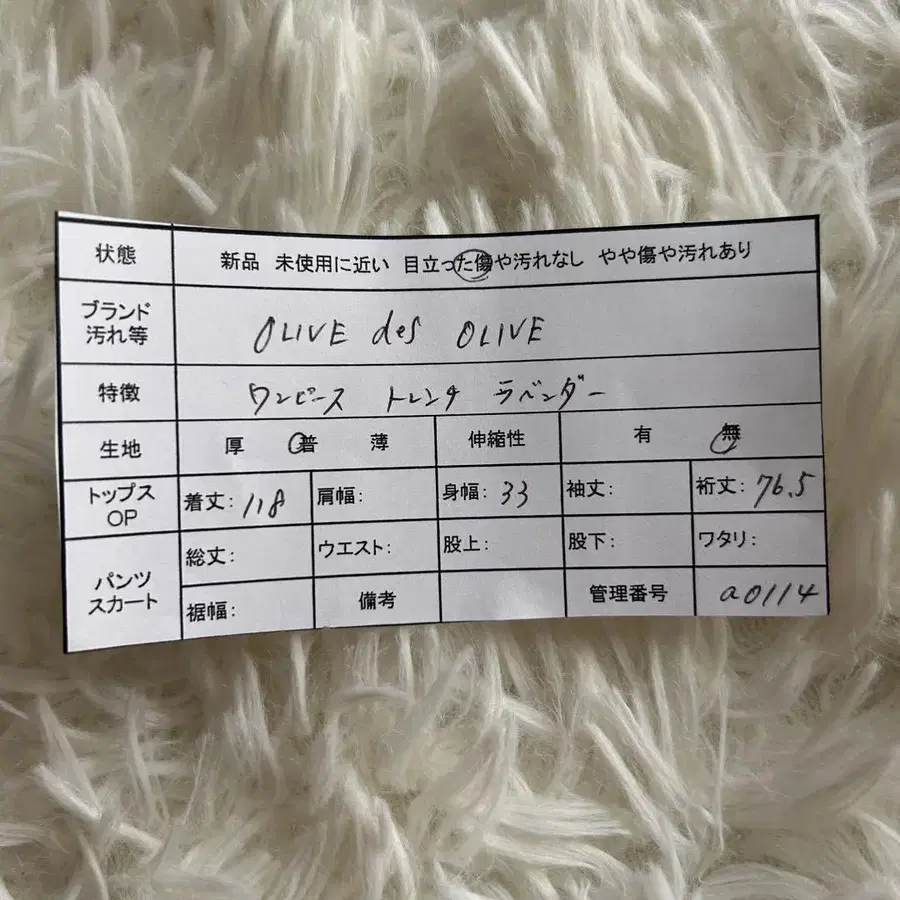 状態 新品 未使用に近い 目立った傷や汚れなし やや傷や汚れあり
ブランド
汚れ等
OLIVE des OLIVE
特徴 ワンピース トレンチ ラベンダー
生地 厚 普 薄 伸縮性 有 無
トップス
OP
着丈: 118 肩幅: 身幅: 33 袖丈: 裄丈: 76.5
パンツ
スカート
総丈: ウエスト: 股上: 股下: ワタリ:
裾幅: 備考 管理番号 a0114